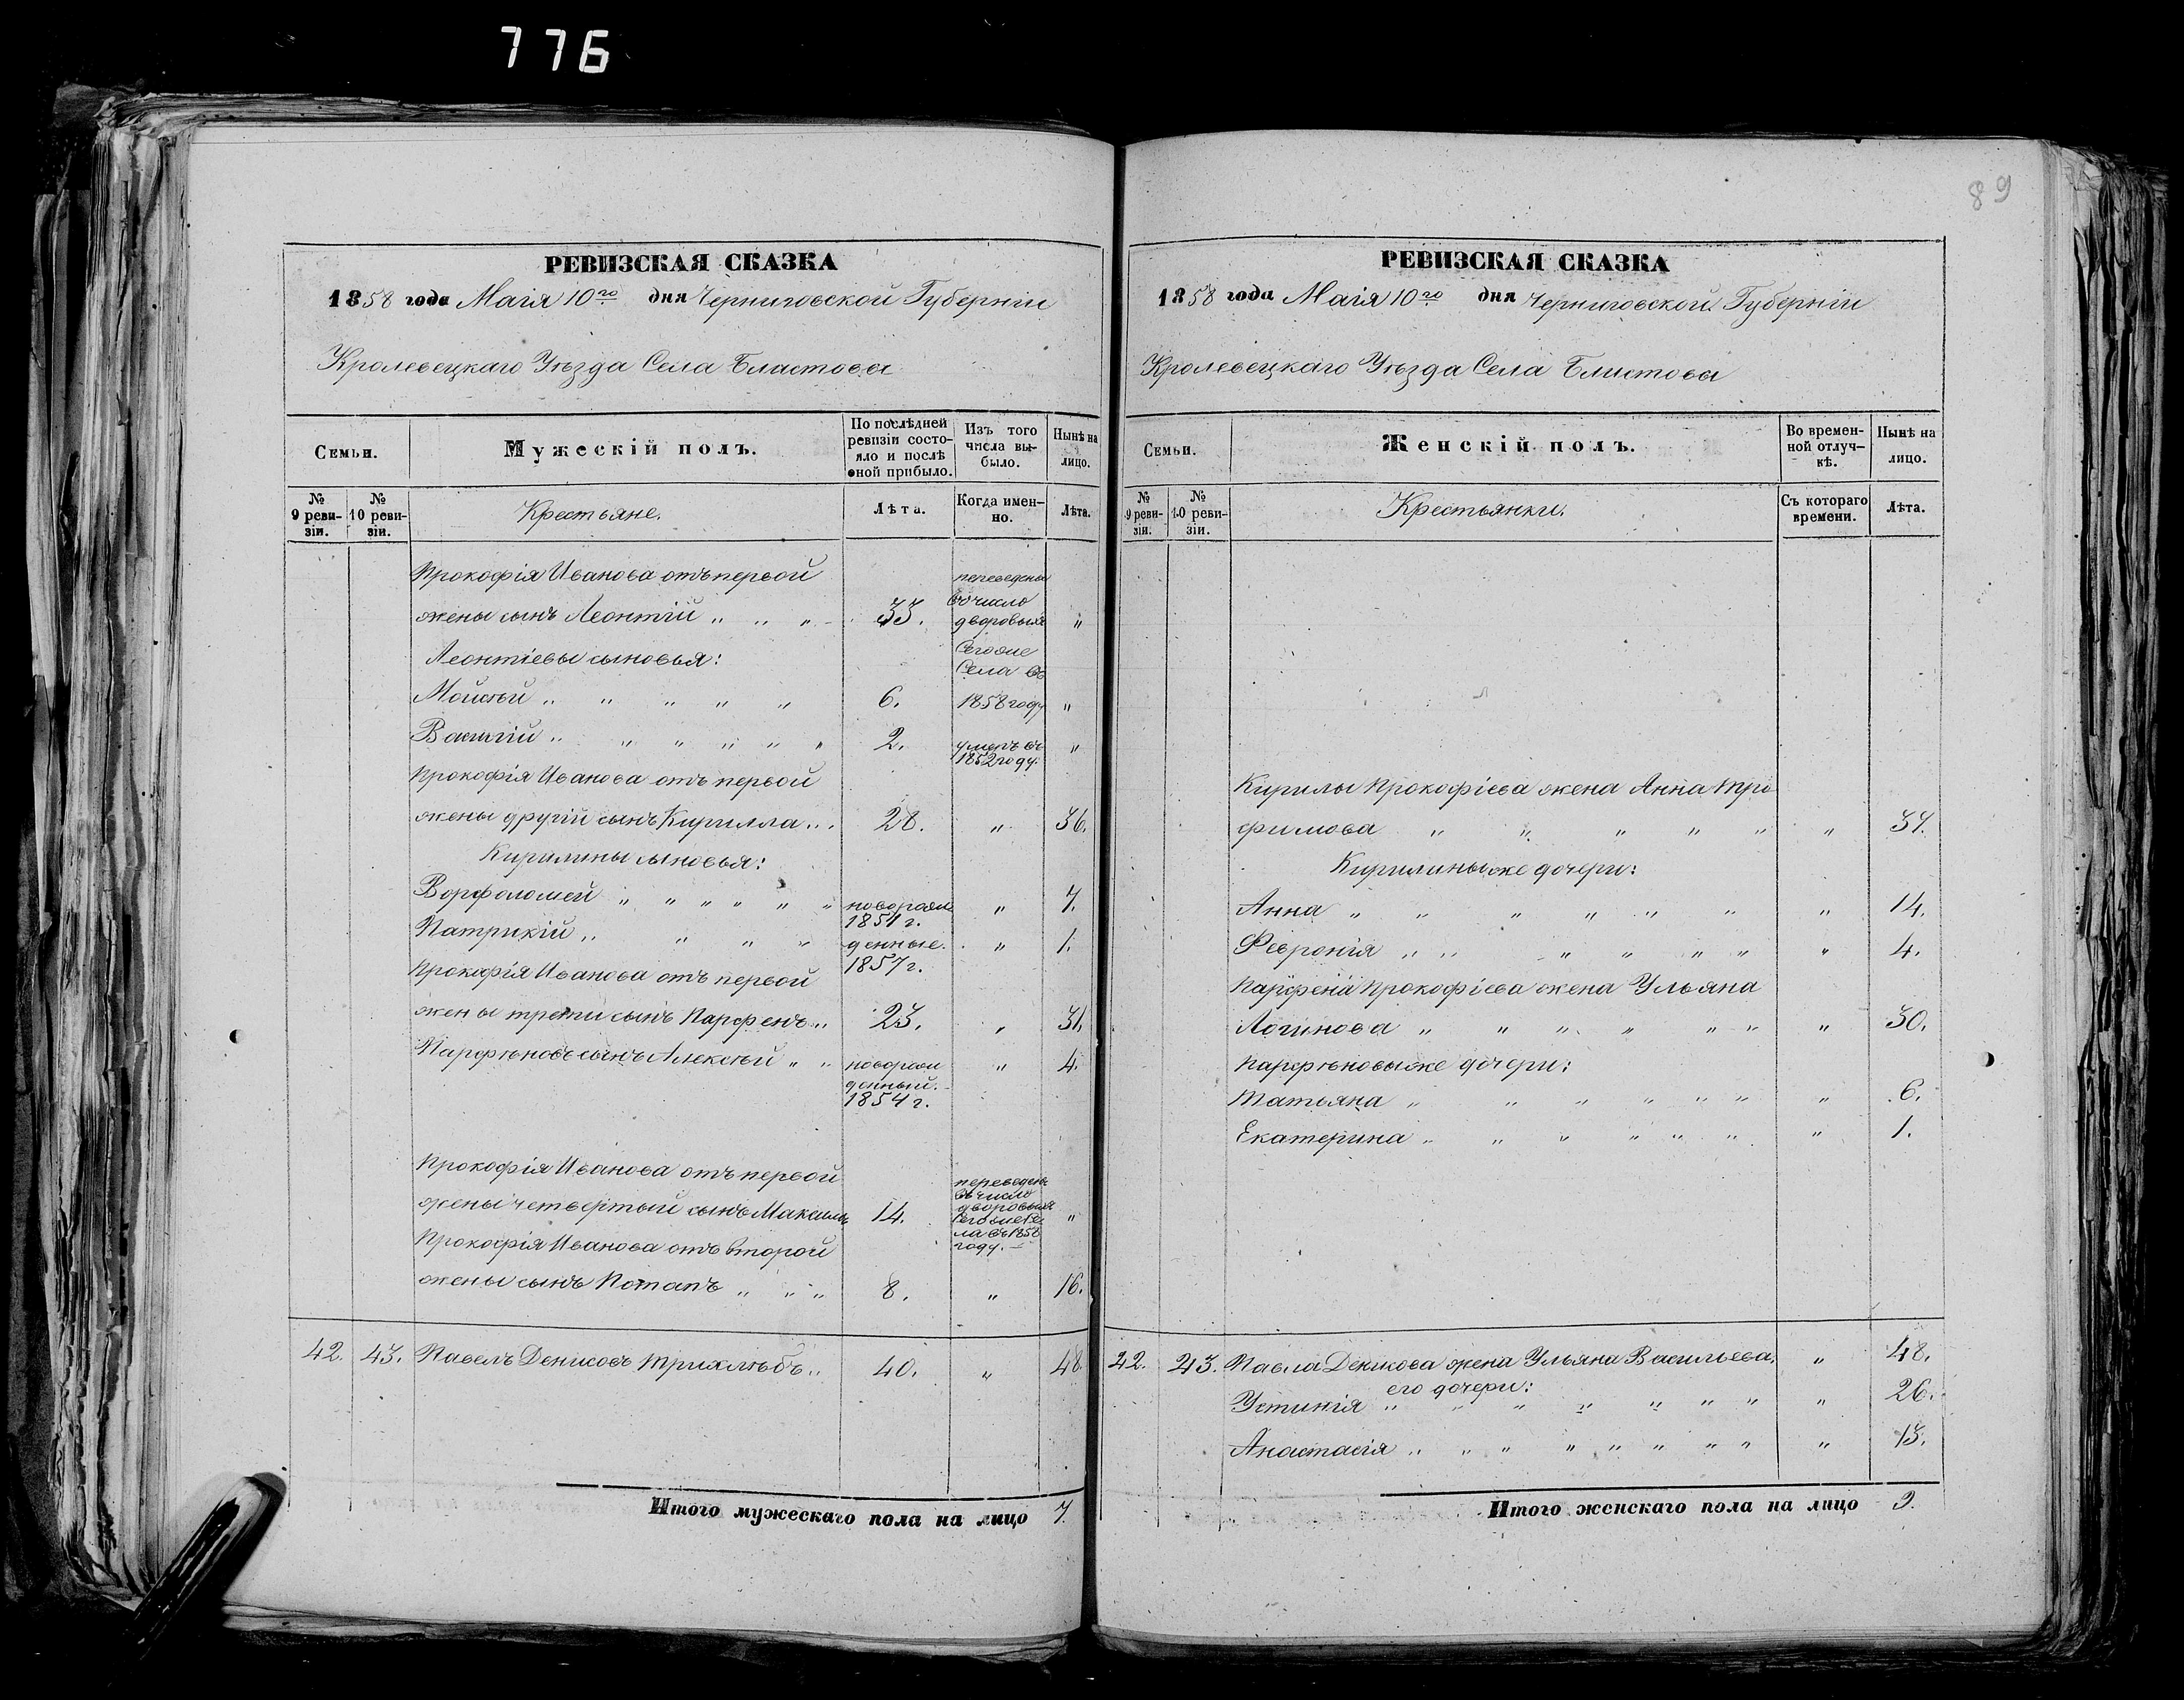 776
89
РЕВИЗСКАЯ СКАЗКА
1858 года Маія 10го дня Черниговской Губерніи
Кролевецкаго Уѣзда Села Блистовы
Семьи.
Мужескій полъ.
По послѣдней ревизіи состояло и послѣ оной прибыло.
Изъ того числа выбыло.
Нынѣ на лицо.
№ 9 ревизіи.
№ 10 ревизіи.
Крестьяне.
Лѣта.
Когда именно.
Лѣта.
Прокофія Иванова отъ первой
жены сынъ Леонтій „ „ „ 33. переведены въ число дворовыхъ „
Леонтіевы сыновья: Сегоже Села въ
Мойсѣй „ „ „ „ „ 6. 1858 году „
Василій „ „ „ „ „ „ 2. умеръ въ 1852 году. „
Прокофія Иванова отъ первой
жены другій сынъ Кирилла „ . 28. „ 36.
Кирилины сыновья:
Ворфоломей „ „ „ „ „ „ новорож 1851 г. „ 7.
Патрикій „ „ „ „ денные. 1857 г. „ 1.
Прокофія Иванова отъ первой
жены третій сынъ Парфенъ „ 23. „ 31.
Парфѣновъ сынъ Алексѣй „ „ новорож денный. 1854 г. „ 4.
Прокофія Иванова отъ первой
жены четвертый сынъ Максимъ 14. переведенъ въ число дворовыхъ Сегоже Села въ 1858 году. „
Прокофія Иванова отъ второй
жены сынъ Потапъ „ „ „ 8. „ 16.
42. 43. Павелъ Денисовъ Трихлѣбъ „ 40. „ 48
Итого мужескаго пола на лицо 7.
РЕВИЗСКАЯ СКАЗКА
1858 года Маія 10го дня Черниговской Губерніи
Кролевецкаго Уѣзда Села Блистовы
Семьи.
Женскій полъ.
Во временной отлучкѣ.
Нынѣ на лицо.
№ 9 ревизіи.
№ 10 ревизіи.
Крестьянки.
Съ котораго времени.
Лѣта.
Кирилы Прокофіева жена Анна Тро
фимова „ „ „ „ „ „ 37.
Кирилиныже дочери:
Анна „ „ „ „ „ „ „ 14.
Февронія „ „ „ „ „ „ „ 4.
Парфена Прокофіева жена Ульяна
Логинова „ „ „ „ „ „ „ 30.
Парфѣновыже дочери:
Татьяна „ „ „ „ „ „ „ 6.
Екатерина „ „ „ „ „ „ „ 1.
42. 43. Павла Денисова жена Ульяна Васильева, „ 48.
его дочери:
Устинія „ „ „ „ „ „ „ „ 26.
Анастасія „ „ „ „ „ „ „ „ „ 13.
Итого женскаго пола на лицо 9.